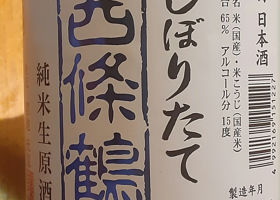 日本酒
名 米(国産)・米こうじ(国産米)
合 65% アルコール分 15度
製造年月
しぼりたて
西條鶴
純米生原酒